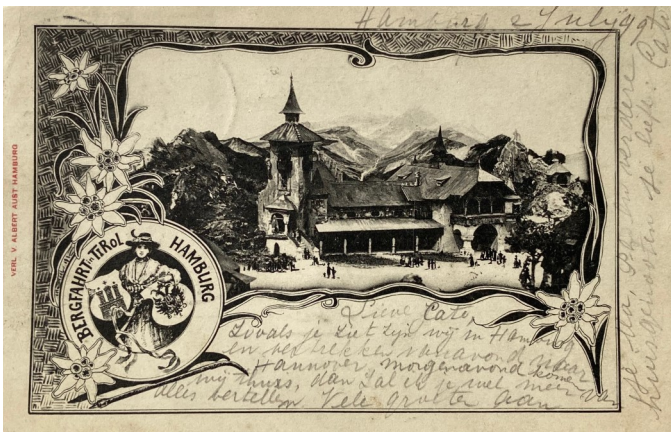 Hamburg 2 July 99
VERL. V. ALBERT AUST HAMBURG
BERGFAHRT IN TIROL HAMBURG
Lieve Cato,
Zooals je ziet zijn wij in Ham
en vertrekken vanavond naar
Hannover, morgenavond komen
wij thuis, dan zal ik je wel meer van
alles vertellen. Vele groeten aan